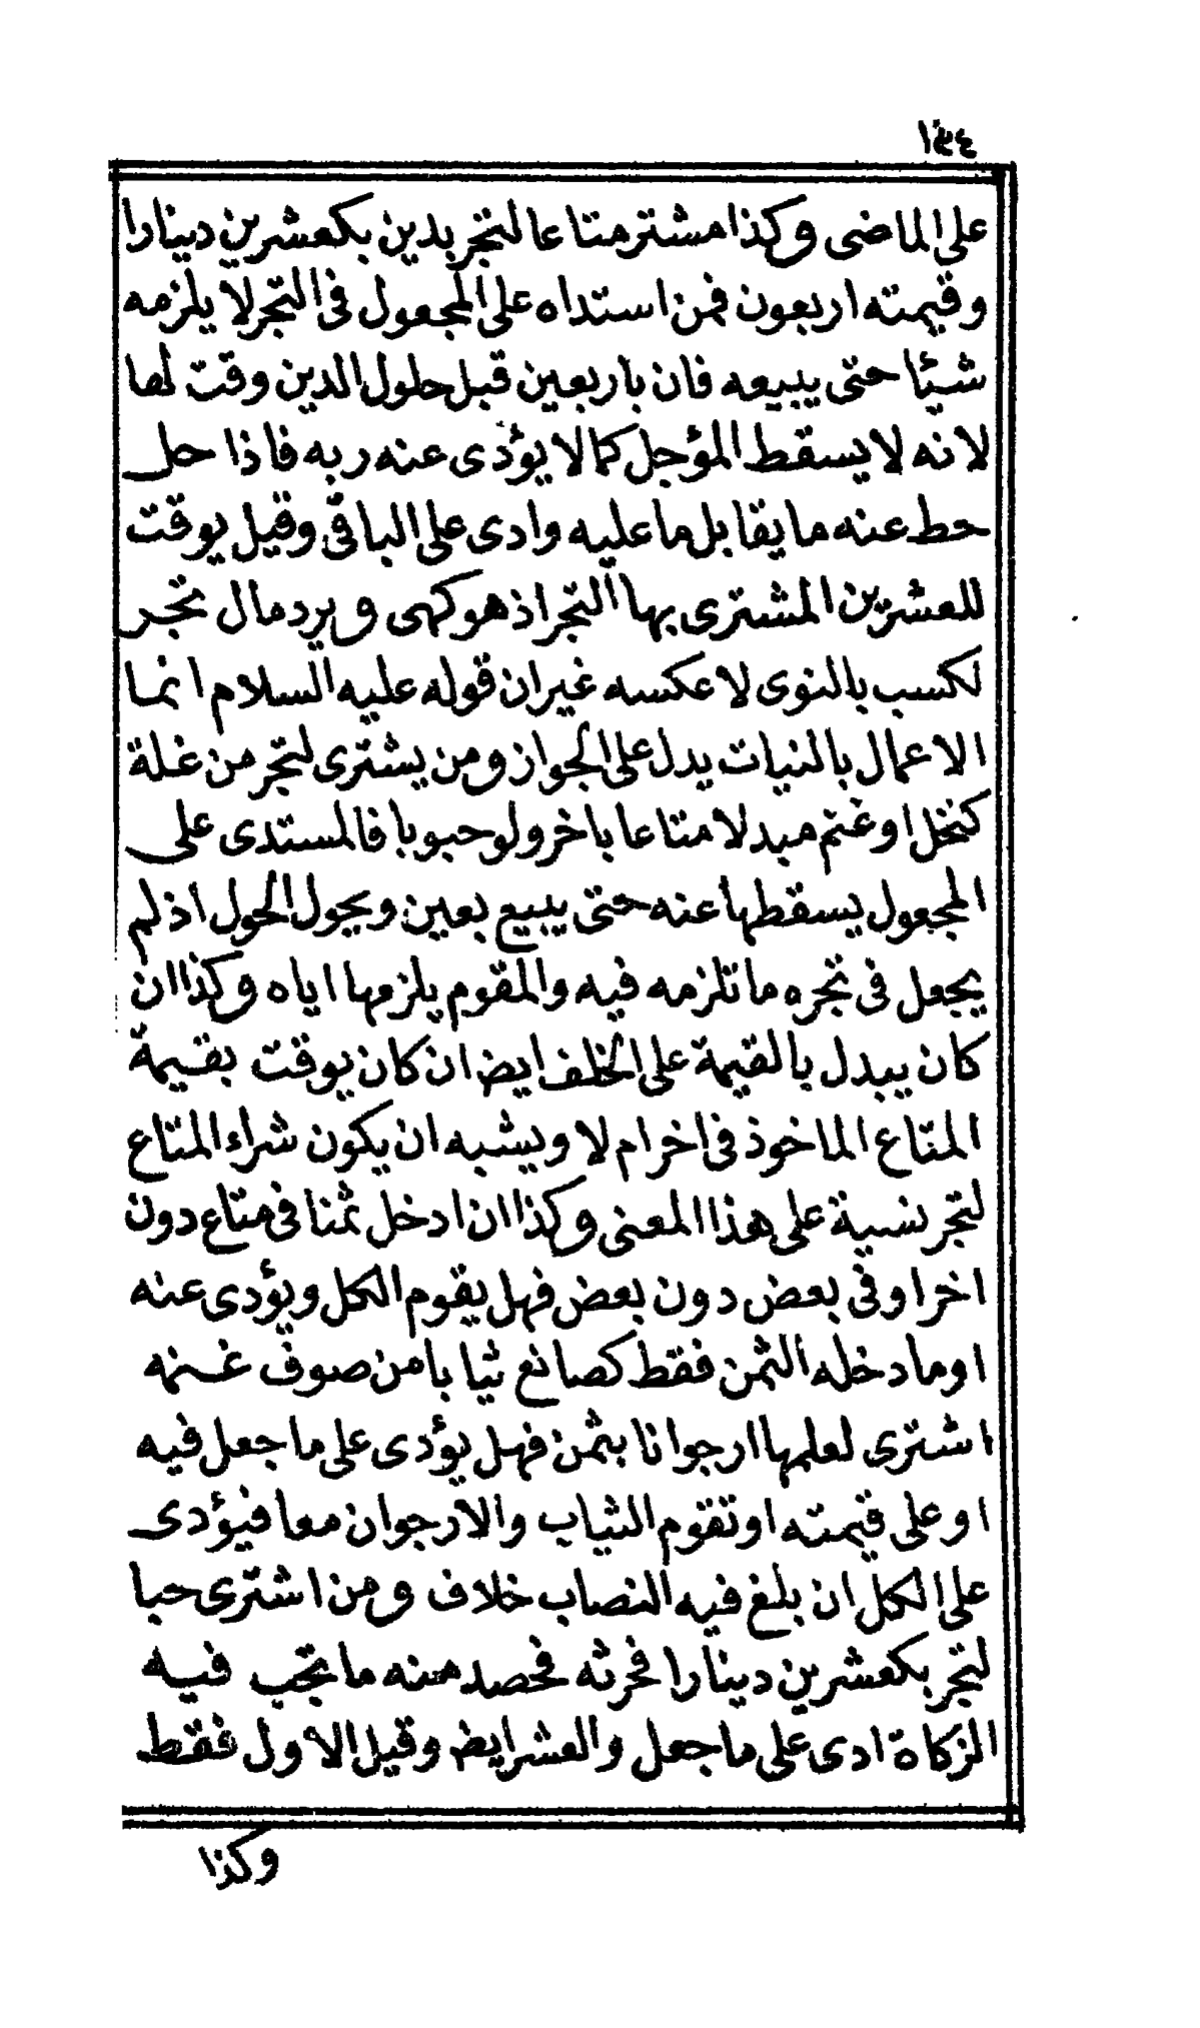 ١٣٤
على الماضى وكذا مشتر متاعا لتجر بدين بكعشرين دينارا
وقيمته اربعون فمن استداه على المجعول فى التجر لا يلزمه
شيئا حتى يبيعه فان باربعين قبل حلول الدين وقت لها
لانه لا يسقط المؤجل كما لا يؤدى عنه ربه فاذا حل
حط عنه ما يقابل ما عليه وادى على الباقى وقيل يوقت
للعشرين المشترى بها التجر اذ هو كهى ويرد مال تجر
لكسب بالنوى لا عكسه غير ان قوله عليه السلام انما
الاعمال بالنيات يدل على الجواز ومن يشترى لتجر من غلة
كنخل او غنم مبدلا متاعا باخر ولو حبوبا فالمستدى على
المجعول يسقطها عنه حتى يبيع بعين ويحول الحول اذ لم
يجعل فى تجره ما تلزمه فيه والمقوم يلزمها اياه وكذا ان
كان يبدل بالقيمة على الخلف ايض ان كان يوقت بقيمة
المتاع الماخوذ فى اخر ام لا ويشبه ان يكون شراء المتاع
لتجر نسية على هذا المعنى وكذا ان ادخل ثمنا فى متاع دون
اخر او فى بعض دون بعض فهل يقوم الكل ويؤدى عنه
او ما دخله الثمن فقط كصانع ثيابا من صوف غنمه
اشترى لعلمها ارجوانا بثمن فهل يؤدى على ما جعل فيه
او على قيمته او تقوم الثياب والارجوان معا فيؤدى
على الكل ان بلغ فيه النصاب خلاف ومن اشترى حبا
لتجر بكعشرين دينارا فحرثه فحصد منه ما تجب فيه
الزكاة ادى على ما جعل والعشر ايض وقيل الاول فقط
وكذا